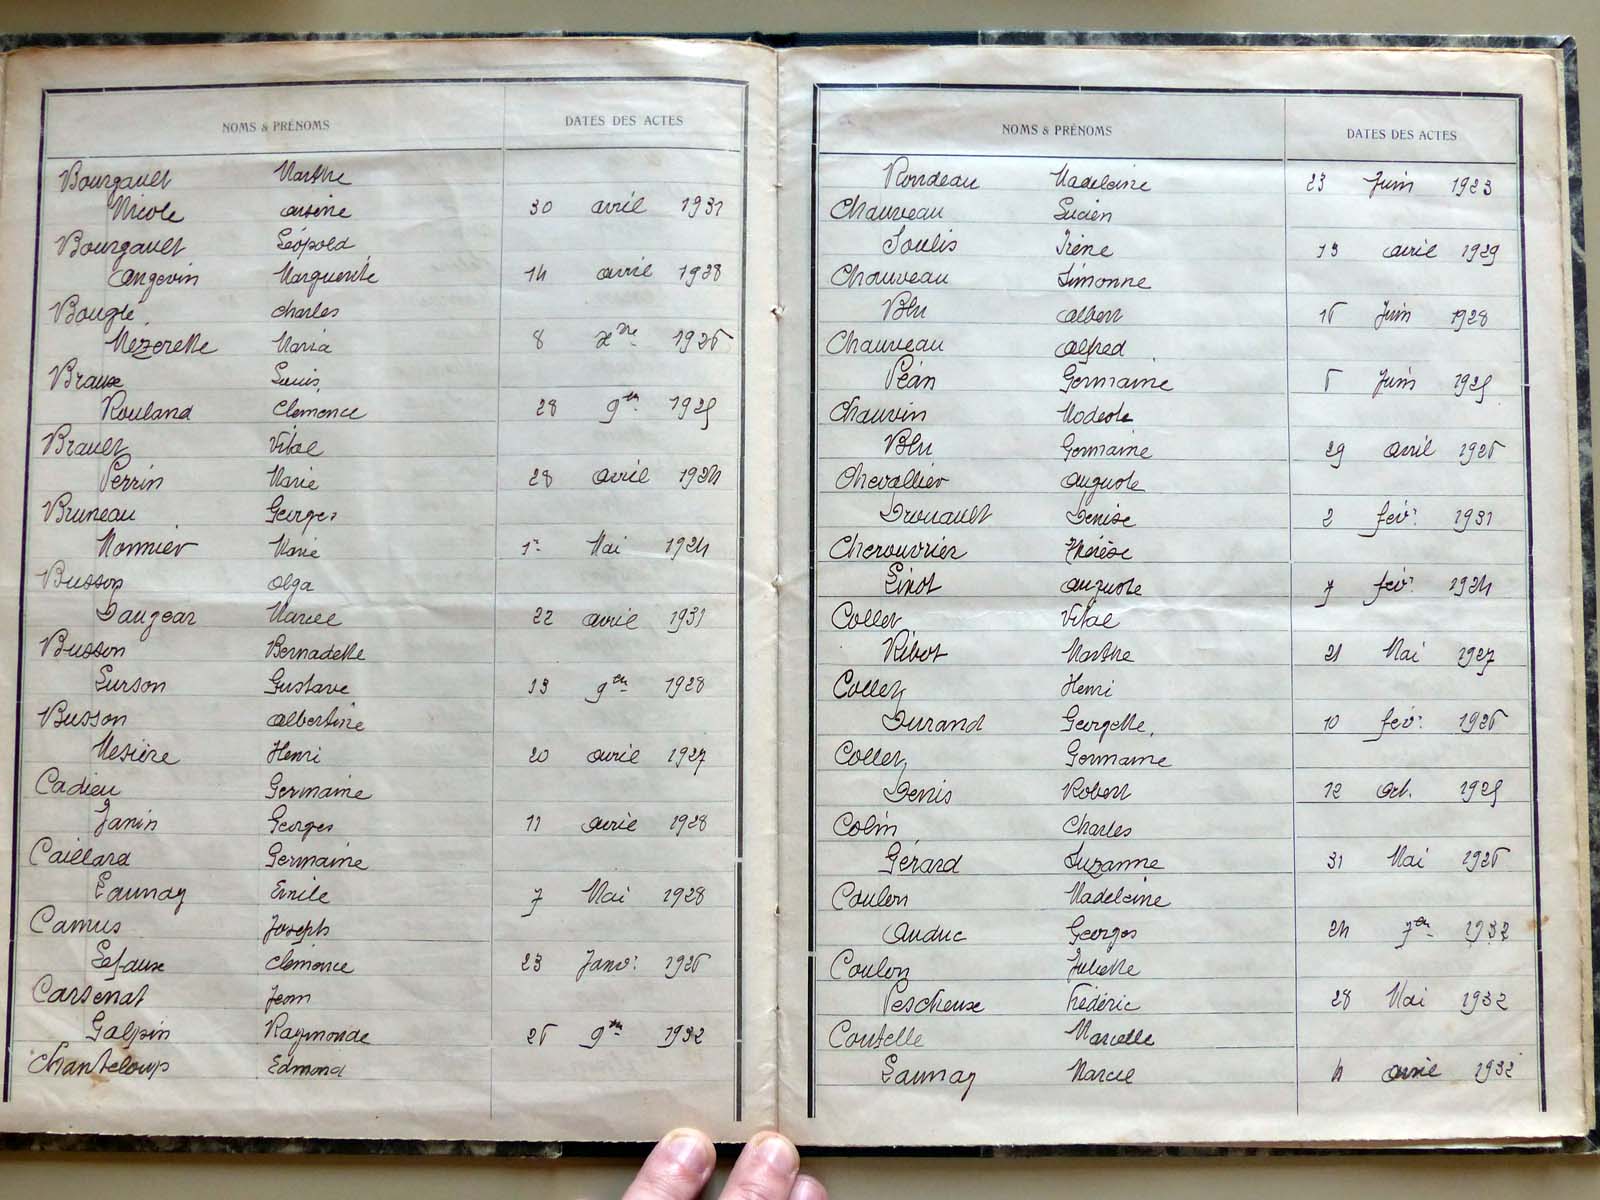 NOMS & PRÉNOMS DATES DES ACTES
Bourgault Marthe
Nicole arsène 30 avril 1931
Bourgault Léopold
Angevin Marguerite 14 avril 1928
Bouglé charles
Mézerette Maria 8 1926
Braux Louis
Rouland Clémence 28 9bre 1925
Brault Vital
Perrin Marie 28 avril 1924
Bruneau Georges
Monnier Marie 1er Mai 1924
Busson olga
Daugear Marcel 22 avril 1931
Busson Bernadette
Surson Gustave 13 9bre 1928
Busson albertine
Mesière Henri 20 avril 1927
Cadieu Germaine
Janin Georges 11 avril 1928
Caillard Germaine
Launay Emile 7 Mai 1928
Camus Joseph
Lefaux clémence 23 Janv: 1926
Carsenat Jean
Galpin Raymonde 26 9bre 1932
Chanteloup Edmond
NOMS & PRÉNOMS DATES DES ACTES
Rondeau Madeleine 23 Juin 1923
Chauveau Lucien
Soulis Irène 13 avril 1929
Chauveau Simonne
Blu albert 16 Juin 1928
Chauveau alfred
Péan Germaine 6 Juin 1925
Chauvin Modeste
Blu Germaine 29 avril 1926
Chevallier auguste
Drouault Denise 2 fév: 1931
Cherouvrier Thérèse
Linot auguste 7 fév: 1924
Collet Vital
Ribot Marthe 21 Mai 1927
Collet Henri
Durand Georgette 10 fév: 1926
Collet Germaine
Denis Robert 12 Oct. 1925
Colin Charles
Gérard Suzanne 31 Mai 1926
Coulon Madeleine
Auduc Georges 24 7bre 1932
Coulon Juliette
Pescheux Frédéric 28 Mai 1932
Coutelle Marcelle
Launay Marcel 4 avril 1932